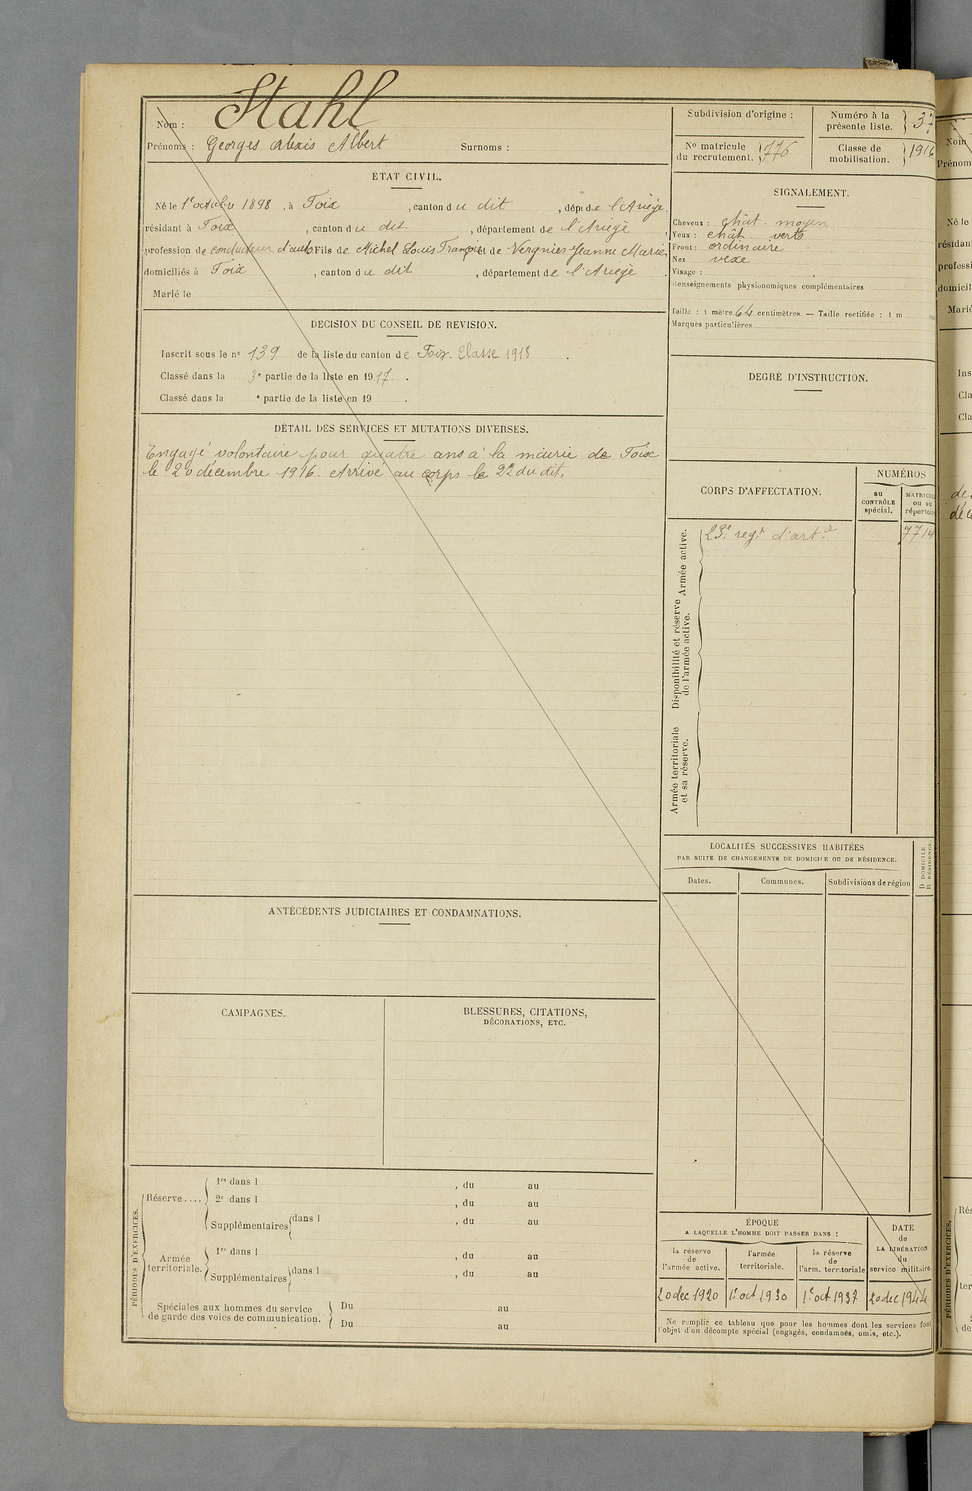 Stahl
Nom :
Prénoms : Georges Alexis Albert Surnoms :
ETAT CIVIL.
Né le 1er octobre 1898, à Foix, canton du dit, dépt de l'Ariège
résidant à Foix, canton du dit, département de l'Ariège
profession de conducteur d'auto Fils de Michel Louis François et de Vergnies Jeanne Marie
domiciliés à Foix, canton du dit, département de l'Ariège
Marié le
DECISION DU CONSEIL DE REVISION.
Inscrit sous le n° 139 de la liste du canton de Foix. Classe 1918.
Classé dans la 3e partie de la liste en 1917.
Classé dans la e partie de la liste en 19 .
DÉTAIL DES SERVICES ET MUTATIONS DIVERSES.
Engagé volontaire pour quatre ans à la mairie de Foix
le 20 décembre 1916. Arrivé au corps le 22 du dit.
ANTÉCÉDENTS JUDICIAIRES ET CONDAMNATIONS.
CAMPAGNES.
BLESSURES, CITATIONS,
DÉCORATIONS, ETC.
PÉRIODES D'EXERCICES.
Réserve....
1re dans l , du au
2e dans l , du au
Supplémentaires dans l , du au
Armée
territoriale.
1re dans l , du au
Supplémentaires dans l , du au
Spéciales aux hommes du service
de garde des voies de communication.
Du au
Du au
Subdivision d'origine :
Numéro à la
présente liste.
N° matricule
du recrutement. 776
Classe de
mobilisation. 1916
SIGNALEMENT.
Cheveux : chât. moyen
Yeux : chât. verts
Front : ordinaire
Nez vexe
Visage :
Renseignements physionomiques complémentaires
Taille : 1 mètre 64 centimètres. — Taille rectifiée : 1 m
Marques particulières
DEGRÉ D'INSTRUCTION.
CORPS D'AFFECTATION.
NUMÉROS
au
CONTRÔLE
spécial.
MATRICULE
ou au
répertoire
Armée active.
23e regt d'artie
7714
Disponibilité et réserve
de l'armée active.
Armée territoriale
et sa réserve.
LOCALITÉS SUCCESSIVES HABITÉES
PAR SUITE DE CHANGEMENTS DE DOMICILE OU DE RÉSIDENCE.
Dates.
Communes.
Subdivisions de région
D. DOMICILE
R. RÉSIDENCE
ÉPOQUE
A LAQUELLE L'HOMME DOIT PASSER DANS :
la réserve
de
l'armée active.
l'armée
territoriale.
la réserve
de
l'arm. territoriale
DATE
de
LA LIBÉRATION
du
service militaire.
20 dec 1920
1er oct 1930
1er oct 1937
20 dec 1944
Ne remplir ce tableau que pour les hommes dont les services font
l'objet d'un décompte spécial (engagés, condamnés, omis, etc.).